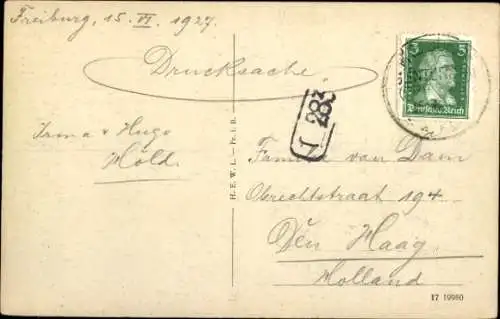 Freiburg, 15. VI. 1927.
Drucksache.
Irma & Hugo
Höld.
5 5
Deutsches Reich
I 283
Familie van Dam
Obrechtstraat 194
Den Haag
Holland
H. E. W. L. - Fr. i. B.
17 19980